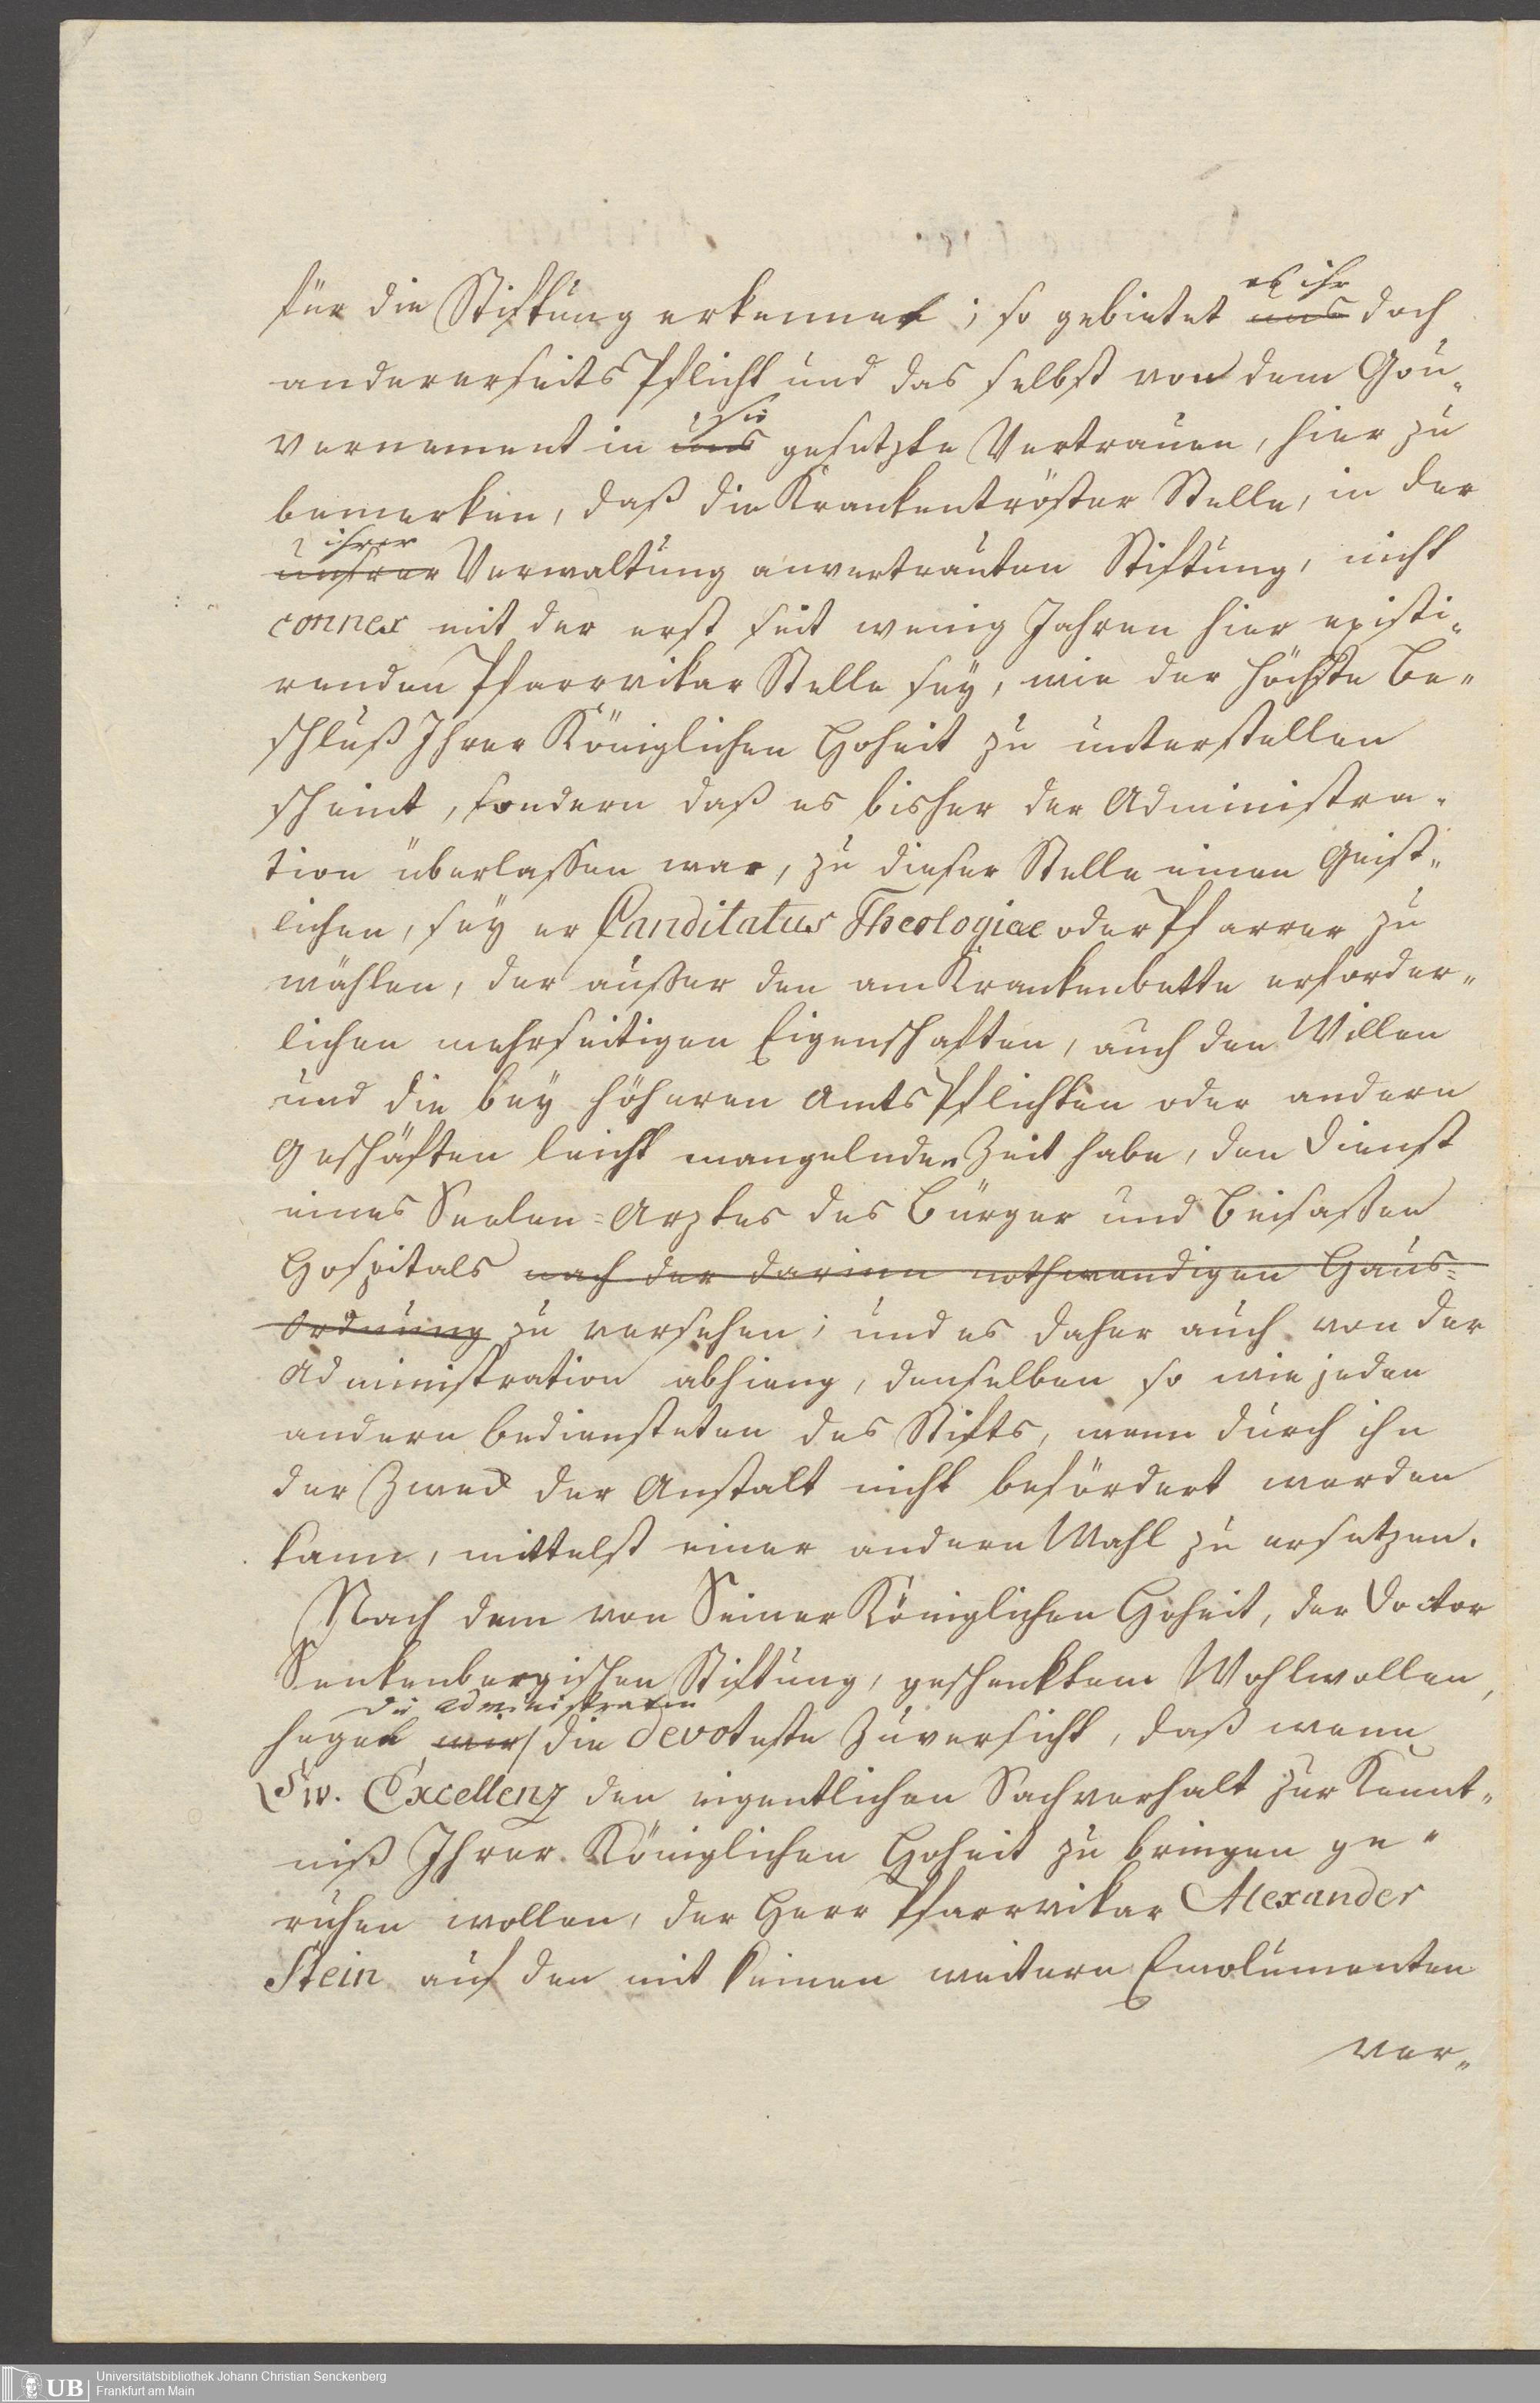 für die Stiftung erkennet; so gebietet es ihr uns doch
andererseits Pflicht und das selbst von dem Gou-
vernement in sie uns gesetzte Vertrauen, hier zu
bemerken, daß die Krankentröster Stelle, in der
ihrer unsrer Verwaltung anvertrauten Stiftung, nicht
connex mit der erst seit wenig Jahren hier existi-
renden Pfarrvikar Stelle sey, wie der höchste Be-
schluß Ihrer Königlichen Hoheit zu unterstellen
scheint, sondern daß es bisher der Administra-
tion überlassen war, zu dieser Stelle einen Geist-
lichen, sey er Canditatus Theologiae oder Pfarrer zu
wählen, der ausser den am Krankenbette erforder-
lichen mehrseitigen Eigenschaften, auch den Willen
und die bey höheren Amts Pflichten oder andern
Geschäften leicht mangelnden Zeit habe, den Dienst
eines Seelen-Arztes des Bürger und Beisassen
Hospitals nach der darinn nothwendigen Haus-
Ordnung zu versehen; und es daher auch von der
Administration abhieng, denselben so wie jeden
andern Bediensteten des Stifts, wenn durch ihn
der Zweck der Anstalt nicht befördert werden
kann, mittelst einer andern Wahl zu ersetzen.
Nach dem von Seiner Königlichen Hoheit, der Doctor
Senkenbergischen Stiftung, geschenktem Wohlwollen,
heget die Administration wir die devoteste Zuversicht, daß wenn
Ew. Excellenz den eigentlichen Sachverhalt zur Kennt-
niß Ihrer Königlichen Hoheit zu bringen ge-
ruhen wollen, der Herr Pfarrvikar Alexander
Stein auf den mit keinen weitern Emolumenten
ver-
UB
Universitätsbibliothek Johann Christian Senckenberg
Frankfurt am Main